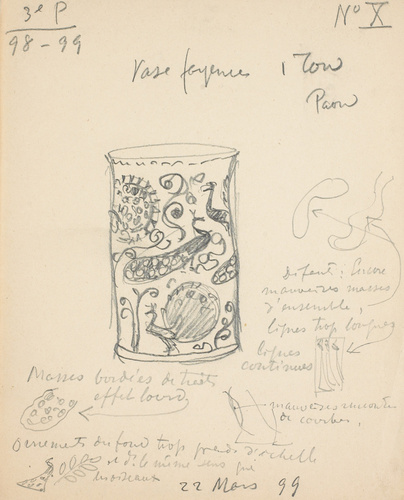 3e P
98-99
No X
Vase fayences 1 Ton
Paon
Défaut : Encore
mauvaises masses
d'ensemble,
lignes trop longues
lignes
continues
Masses bordées de traits
effet lourd
mauvaises rencontres
de courbes.
Ornements du fond trop grands d'échelle
et le même sens que
morceaux
22 Mars 99